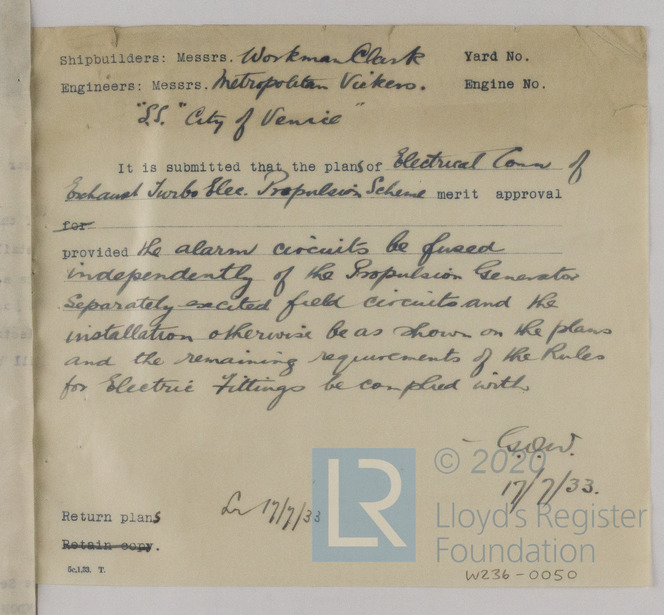 Shipbuilders: Messrs. Workman Clark Yard No.
Engineers: Messrs. Metropolitan Vickers. Engine No.
"S.S. "City of Venice"
It is submitted that the plans of Electrical Conn of
Exhaust Turbo Elec. Propulsion Scheme merit approval
for
provided the alarm circuits be fused
independently of the Propulsion Generator
Separately excited field circuits and the
installation otherwise be as shown on the plans
and the remaining requirements of the Rules
for Electric Fittings be complied with
17/7/33.
Return plans
17/7/33
Retain copy.
6c.1.33. T.
LR
© 2020
Lloyd's Register
Foundation
W236-0050